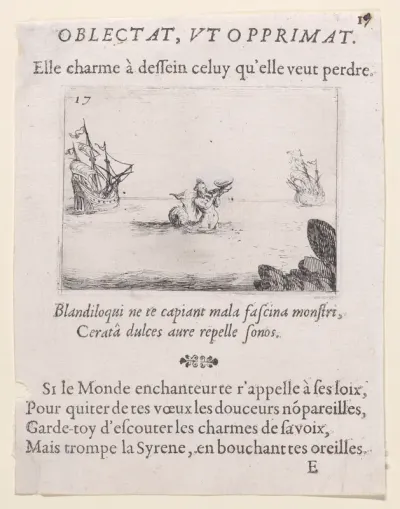 19
OBLECTAT, VT OPPRIMAT.
Elle charme à deſſein celuy qu'elle veut perdre.
17
Blandiloqui ne te capiant mala faſcina monſtri,
Ceratâ dulces aure repelle ſonos.
SI le Monde enchanteur te r'appelle à ſes loix,
Pour quiter de tes vœux les douceurs nõpareilles,
Garde-toy d'eſcouter les charmes de ſa voix,
Mais trompe la Syrene, en bouchant tes oreilles.
E